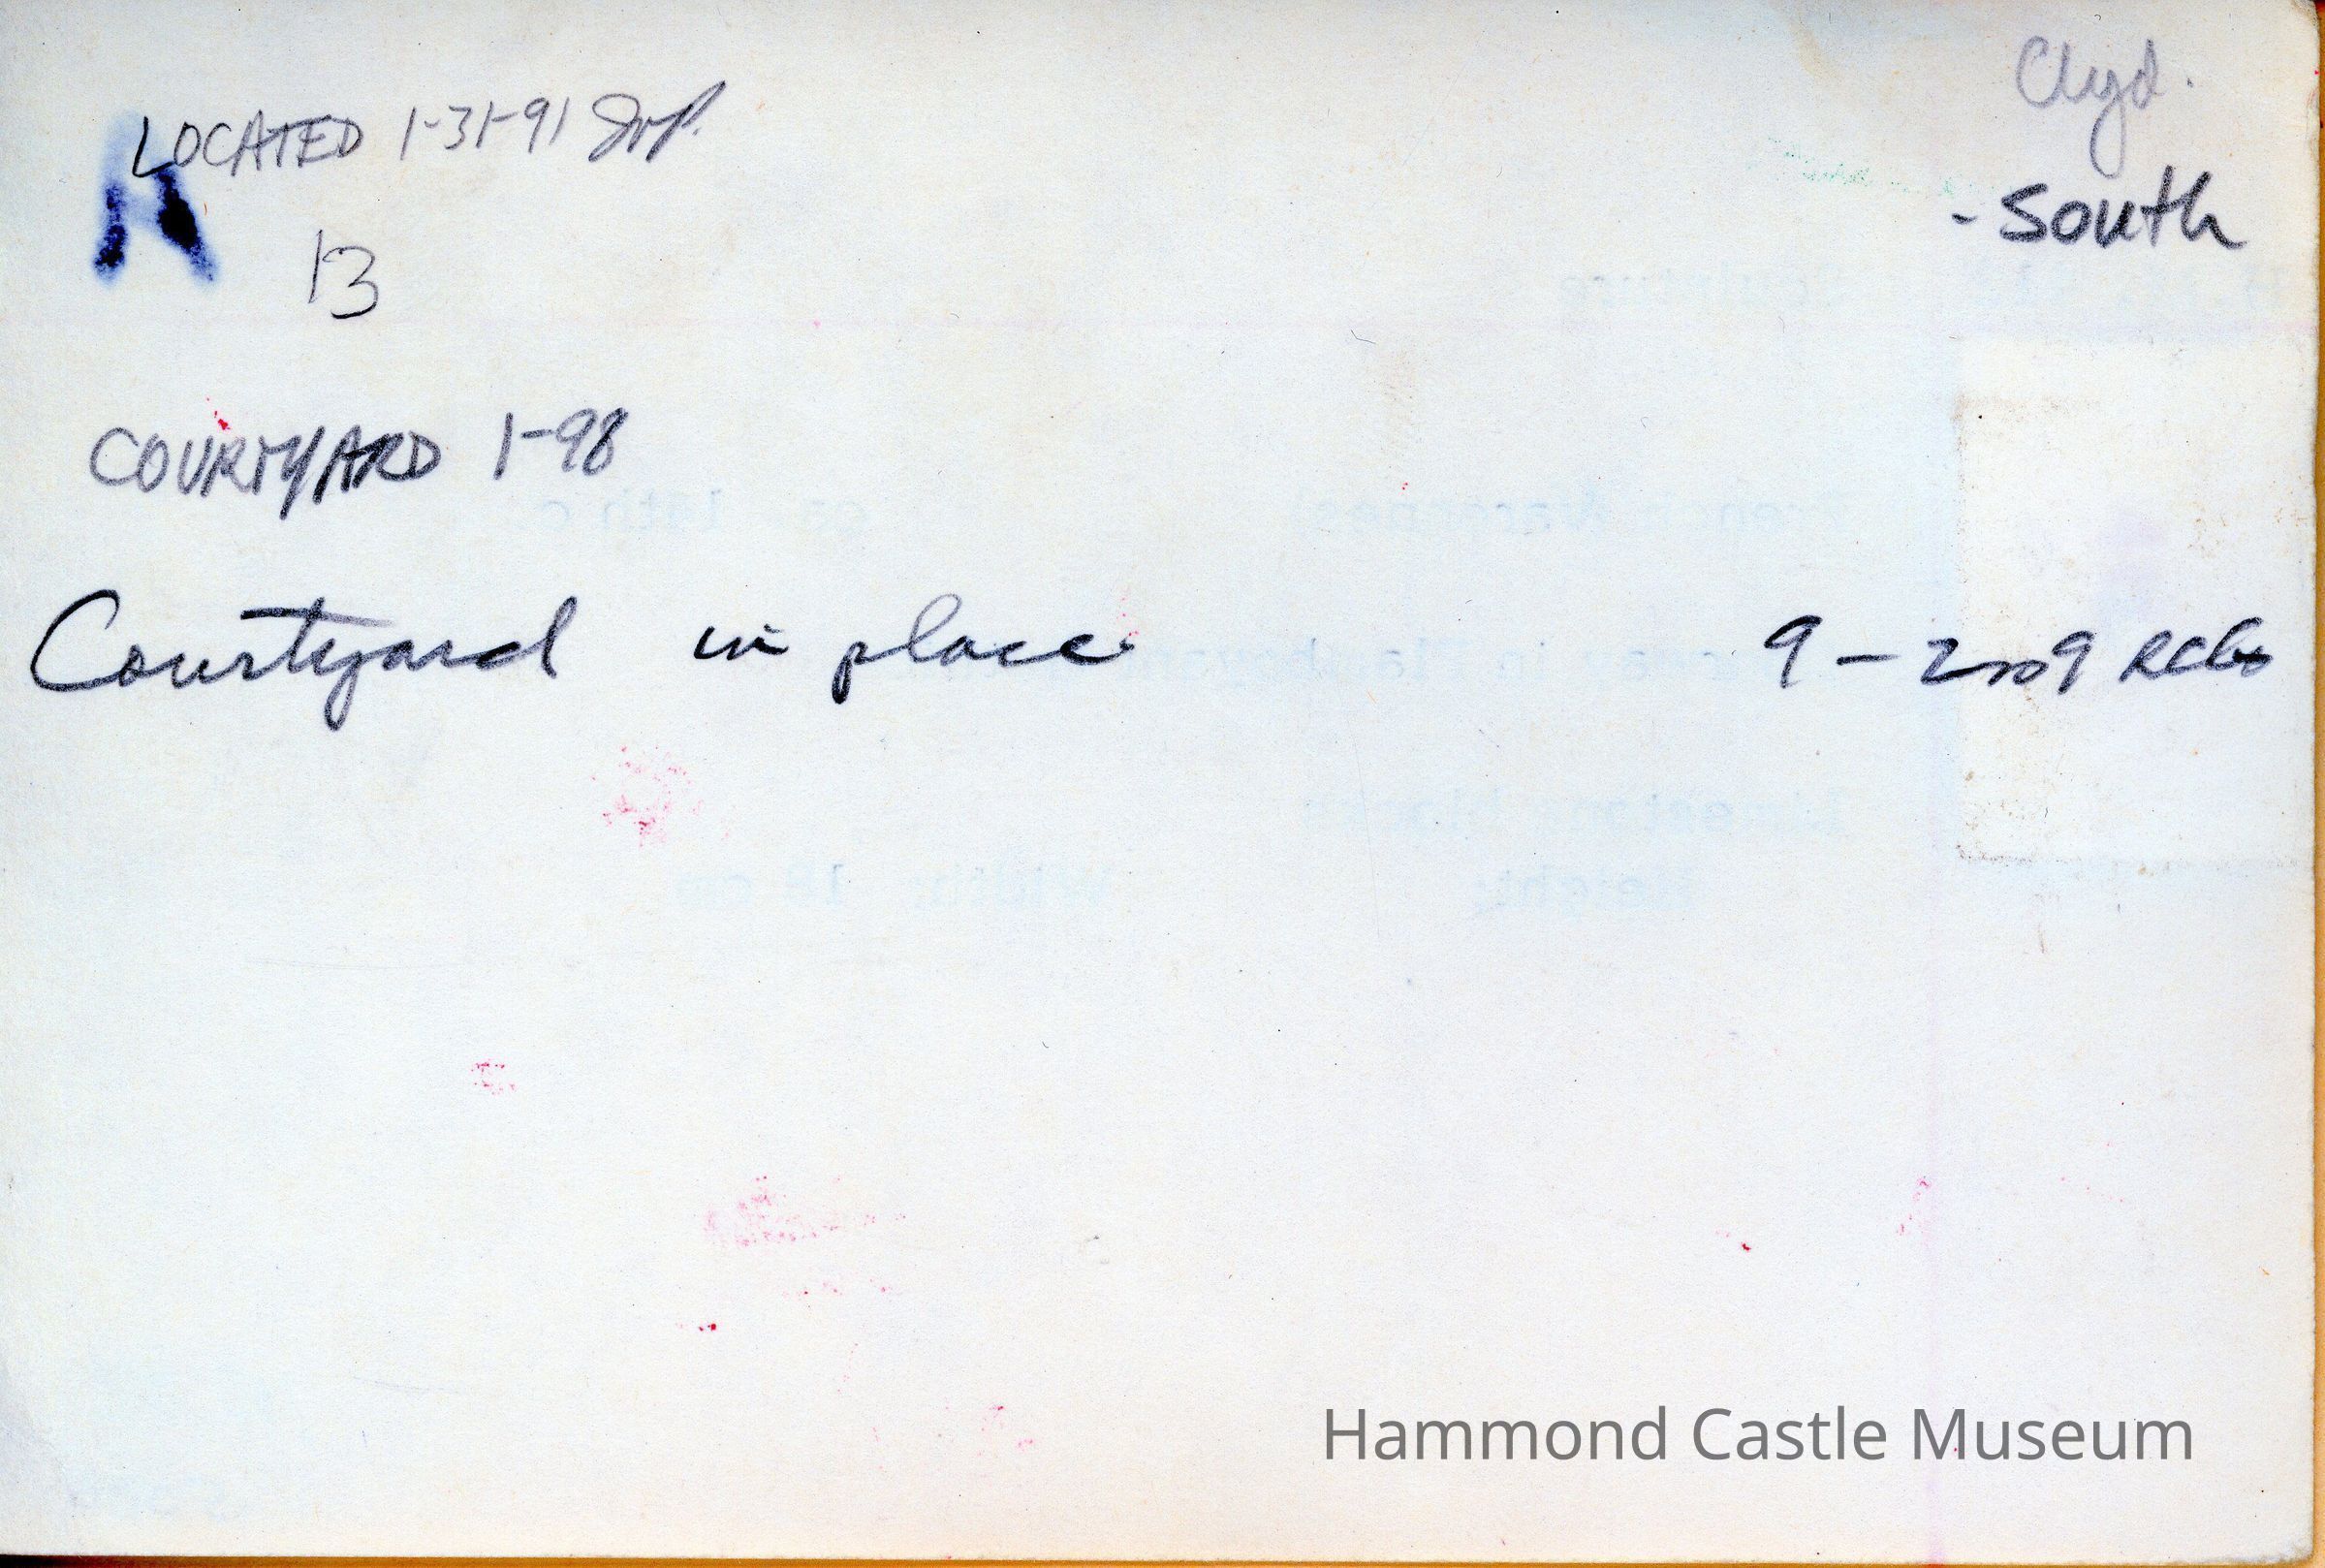 LOCATED 1-31-91
Clyd.
- South
13
COURTYARD 1-98
Courtyard in place 9-2009
Hammond Castle Museum